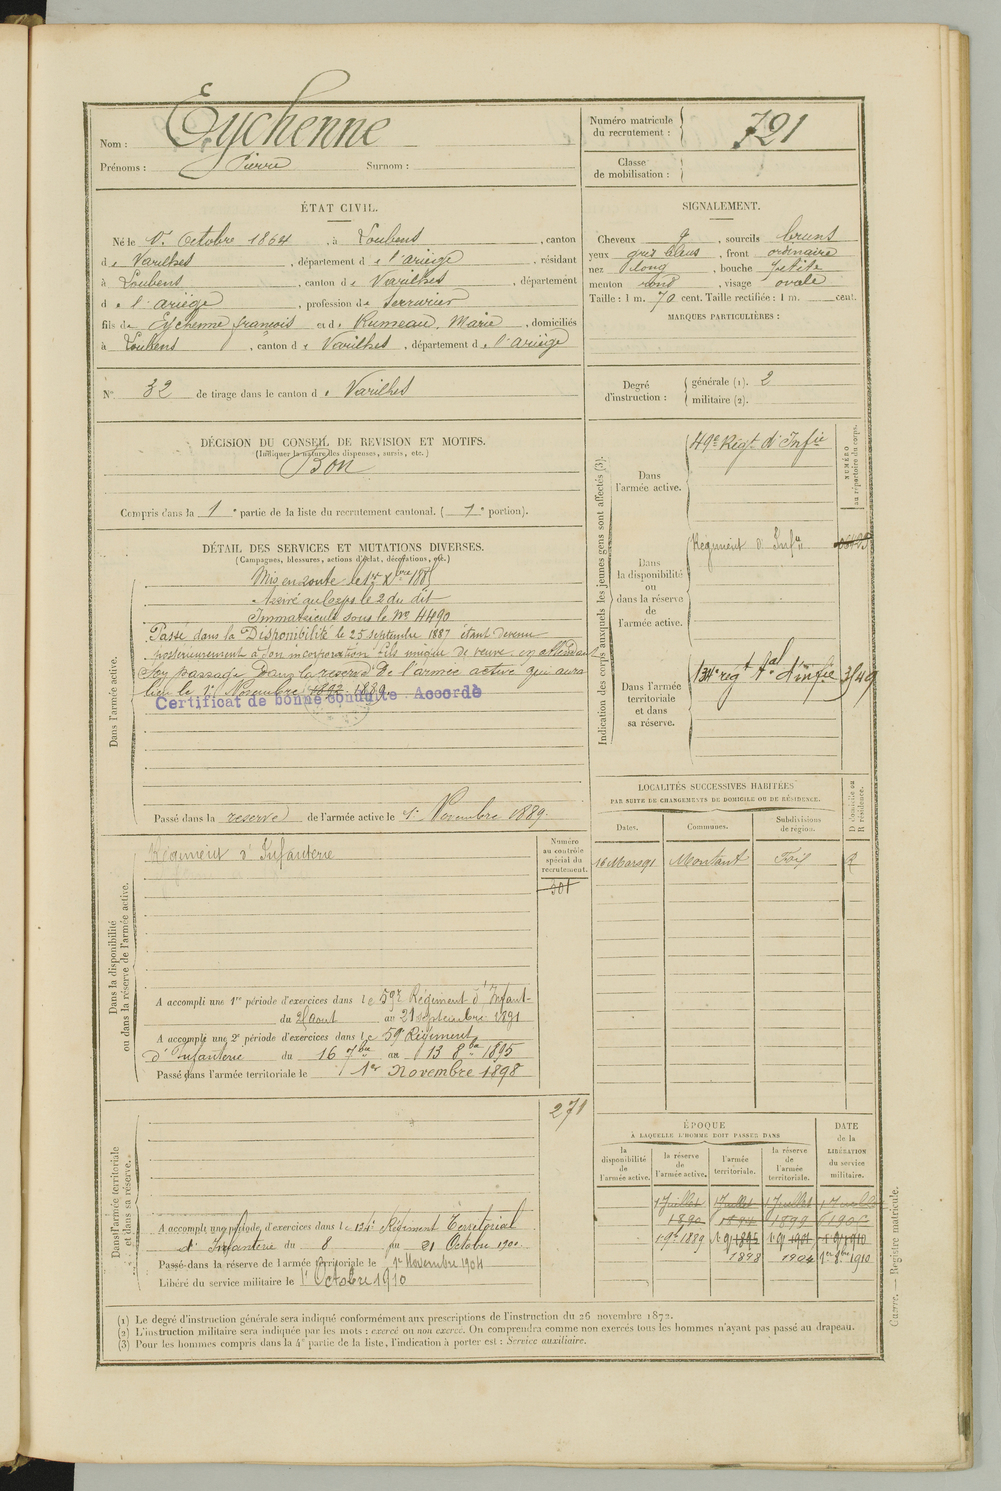 Nom : Eychenne
Prénoms : Pierre Surnom :
Numéro matricule du recrutement : 721
Classe de mobilisation :
ÉTAT CIVIL.
Né le 1er Octobre 1864, à Loubens, canton
de Varilhes, département de l'ariège, résidant
à Loubens, canton de Varilhes, département
de l'ariège, profession de Serrurier
fils de Eychenne françois et de Rumeau, Marie, domiciliés
à Loubens, canton de Varilhes, département de l'ariège
SIGNALEMENT.
Cheveux , sourcils bruns
yeux gris bleus, front ordinaire
nez long, bouche petite
menton rond, visage ovale
Taille : 1 m. 70 cent. Taille rectifiée : 1 m. cent.
MARQUES PARTICULIÈRES :
N° 32 de tirage dans le canton de Varilhes
Degré d'instruction : générale (1). 2
militaire (2).
DÉCISION DU CONSEIL DE REVISION ET MOTIFS.
(Indiquer la nature des dispenses, sursis, etc.)
Bon
Compris dans la 1e partie de la liste du recrutement cantonal. ( 1e portion).
DÉTAIL DES SERVICES ET MUTATIONS DIVERSES.
(Campagnes, blessures, actions d'éclat, décorations, etc.)
Dans l'armée active.
Mis en route le 1er Xbre 1885
Arrivé au Corps le 2 du dit
Immatriculé sous le No 4490
Passé dans la Disponibilité le 25 septembre 1887 étant devenu
postérieurement à son incorporation fils unique de veuve en attendant
son passage dans la réserve de l'armée active qui aura
lieu le 1er Novembre 1889
Certificat de bonne conduite Accordé
Passé dans la réserve de l'armée active le 1er Novembre 1889
Indication des corps auxquels les jeunes gens sont affectés (3).
NUMÉRO au répertoire du corps.
Dans l'armée active.
49e Régt d'Infie
Dans la disponibilité ou dans la réserve de l'armée active.
Régiment d'Infie
Dans l'armée territoriale et dans sa réserve.
134e régt tal d'infie 3/49
LOCALITÉS SUCCESSIVES HABITÉES
PAR SUITE DE CHANGEMENTS DE DOMICILE OU DE RÉSIDENCE.
D domicile ou R résidence.
Dates. Communes. Subdivisions de région.
16 Mars 91 Montaut Foix R
Dans la disponibilité ou dans la réserve de l'armée active.
Régiment d'Infanterie
Numéro au contrôle spécial du recrutement.
301
A accompli une 1re période d'exercices dans le 59e Régiment d'Infant-
du 25 aout au 21 septembre 1891
A accompli une 2e période d'exercices dans le 59e Régiment
d'Infanterie du 16 7bre au 13 8bre 1895
Passé dans l'armée territoriale le 1er Novembre 1898
Dans l'armée territoriale et dans sa réserve.
271
A accompli une période d'exercices dans le 134e Régiment Territorial
d'Infanterie du 8 au 21 Octobre 1900
Passé dans la réserve de l'armée territoriale le 1er Novembre 1904
Libéré du service militaire le 1er Octobre 1910
ÉPOQUE
À LAQUELLE L'HOMME DOIT PASSER DANS
la disponibilité de l'armée active. la réserve de l'armée active. l'armée territoriale. la réserve de l'armée territoriale.
DATE de la LIBÉRATION du service militaire.
1 Juillet 1 Juillet 1 Juillet 1 Juillet
1890 1894 1899 1905
1 9bre 1889
1898 1904 1er 8bre 1910
(1) Le degré d'instruction générale sera indiqué conformément aux prescriptions de l'instruction du 26 novembre 1872.
(2) L'instruction militaire sera indiquée par les mots : exercé ou non exercé. On comprendra comme non exercés tous les hommes n'ayant pas passé au drapeau.
(3) Pour les hommes compris dans la 4e partie de la liste, l'indication à porter est : Service auxiliaire.
Guerre. — Registre matricule.